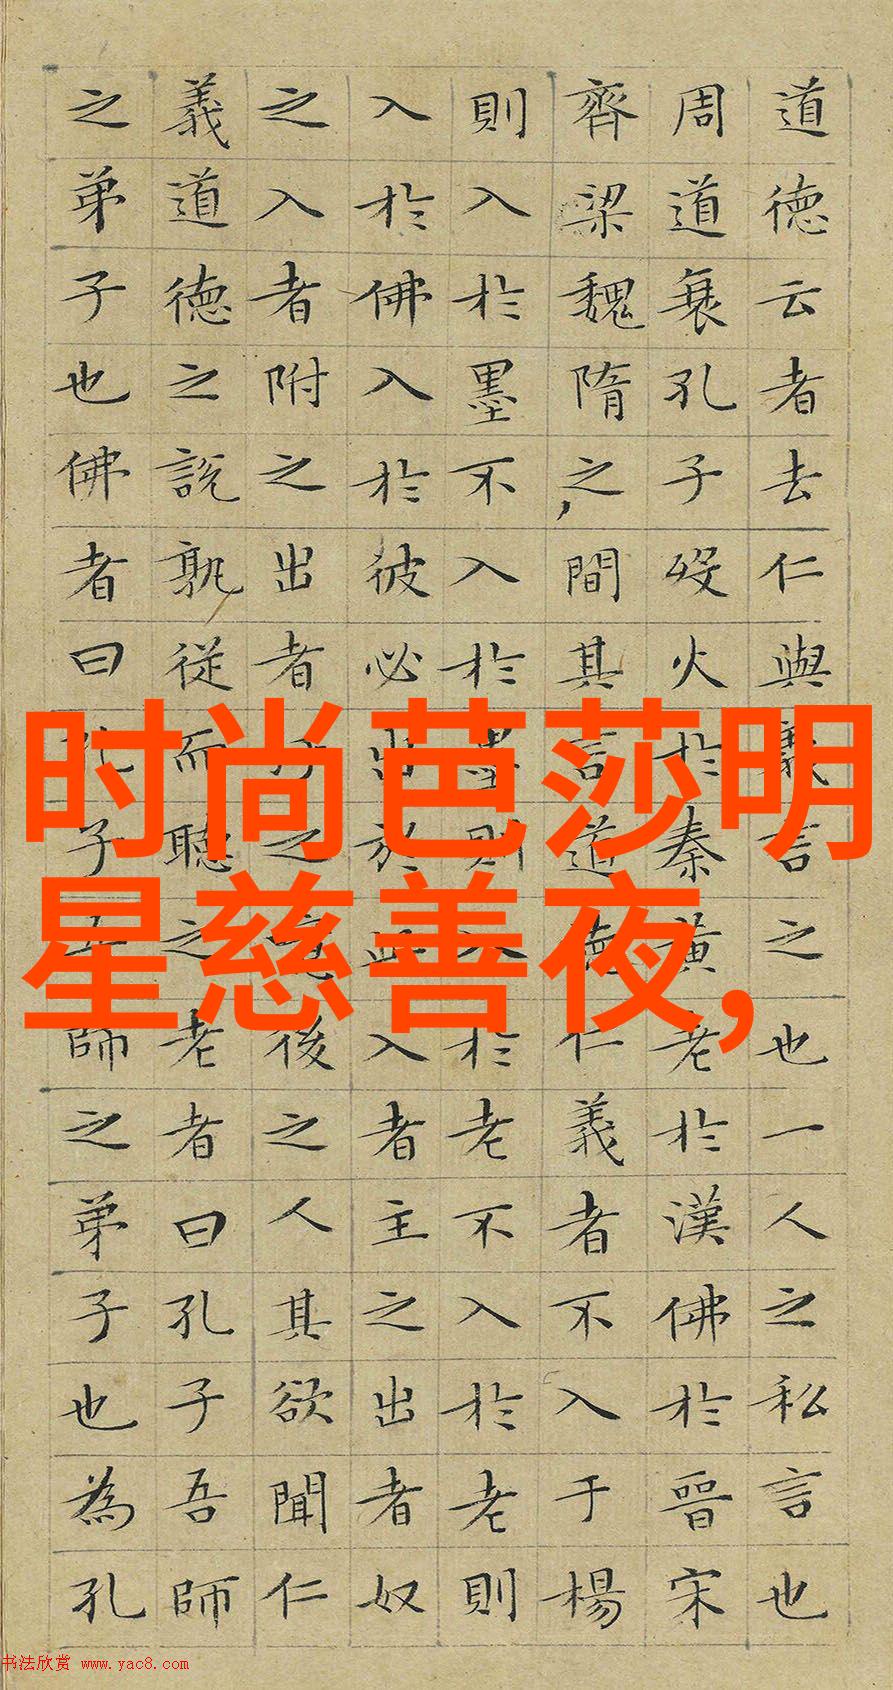 道德云者去仁與義言之也一人之私言也
周道衰孔子歿火於秦黃老於漢佛於晉宋
齊梁魏隋之間其言道德仁義者不入于楊
則入於墨不入於墨則入於老不入於老則
入於佛入於彼必出於此入者主之出者奴
之入者附之出者汙之噫後之人其欲聞仁
義道德之說孰從而聽之老者曰孔子吾師
之弟子也佛者曰孔子吾師之弟子也為孔
时尚芭莎明
星慈善夜,
书法欣赏 www.yac8.com